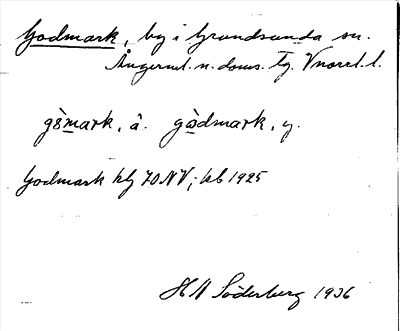 Godmark, by i Grundsunda sn.
Ångerml. n. doms. tg. Vnorrl. l.
gòmark, ä. gòdmark, y.
Godmark hlg 70NV; kb 1925
H N Söderberg 1936